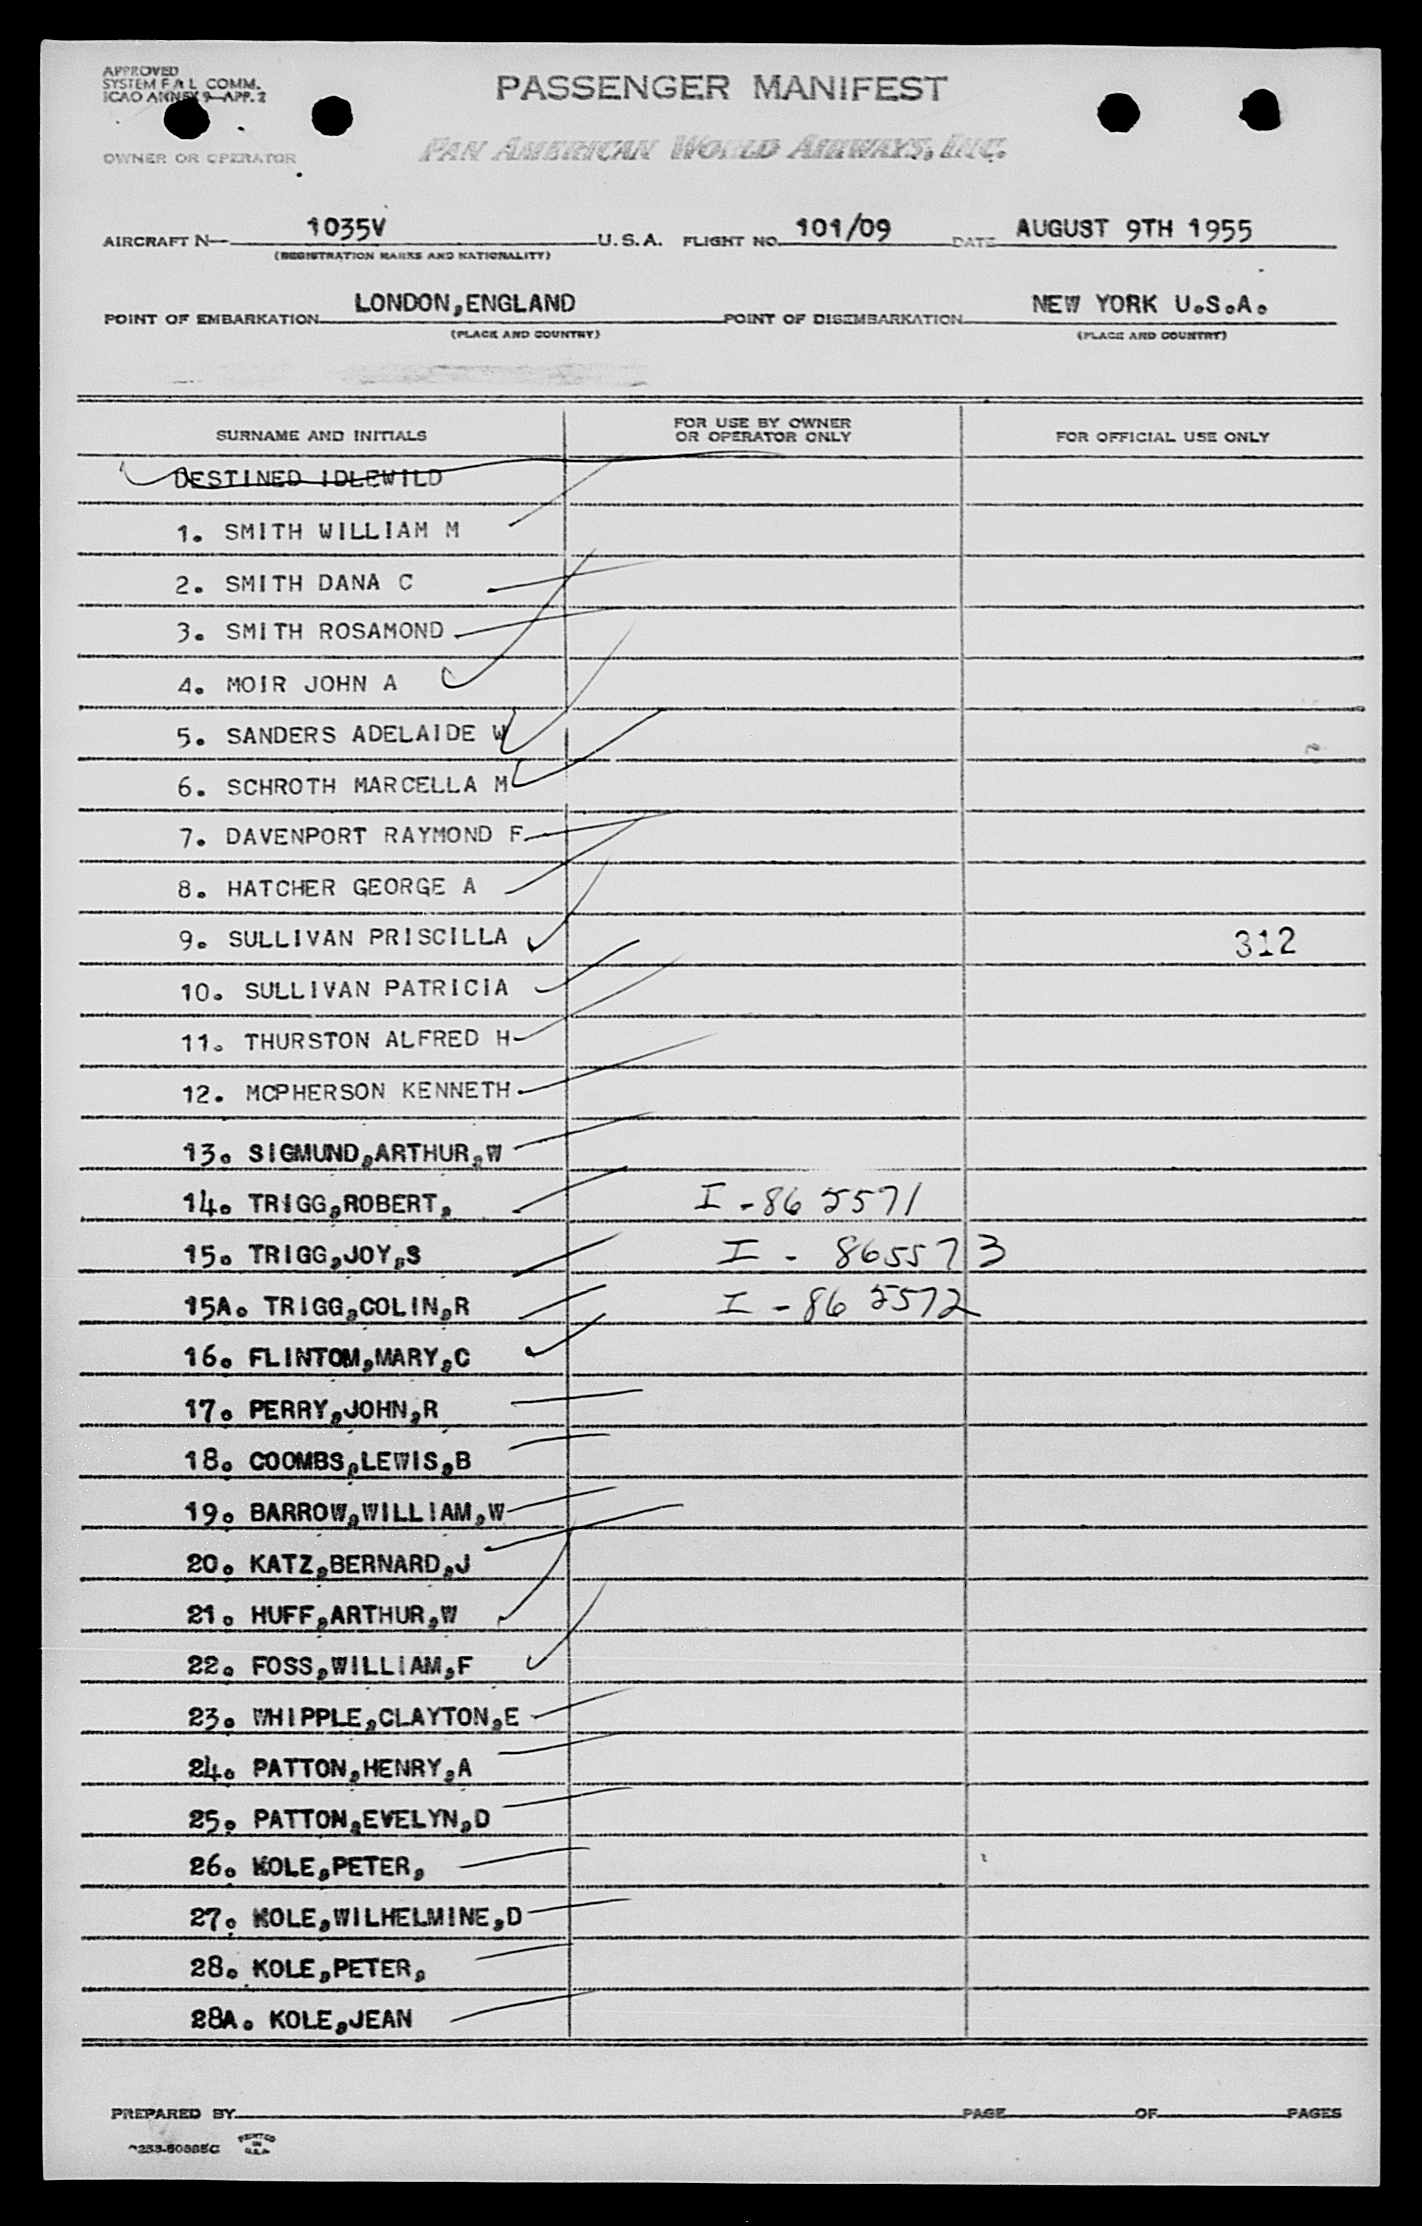 APPROVED
SYSTEM F & L COMM.
ICAO ANNEX 9—APP. 2
PASSENGER MANIFEST
OWNER OR OPERATOR
PAN AMERICAN WORLD AIRWAYS, INC.
AIRCRAFT N— 1035V U.S.A. FLIGHT NO. 101/09 DATE AUGUST 9TH 1955
(REGISTRATION MARKS AND NATIONALITY)
POINT OF EMBARKATION LONDON,ENGLAND POINT OF DISEMBARKATION NEW YORK U.S.A.
(PLACE AND COUNTRY) (PLACE AND COUNTRY)
SURNAME AND INITIALS FOR USE BY OWNER OR OPERATOR ONLY FOR OFFICIAL USE ONLY
DESTINED IDLEWILD
1. SMITH WILLIAM M
2. SMITH DANA C
3. SMITH ROSAMOND
4. MOIR JOHN A
5. SANDERS ADELAIDE W
6. SCHROTH MARCELLA M
7. DAVENPORT RAYMOND F
8. HATCHER GEORGE A
9. SULLIVAN PRISCILLA 312
10. SULLIVAN PATRICIA
11. THURSTON ALFRED H
12. MCPHERSON KENNETH
13. SIGMUND,ARTHUR,W
14. TRIGG,ROBERT, I-865571
15. TRIGG,JOY,S I - 865573
15A. TRIGG,COLIN,R I-865572
16. FLINTOM,MARY,C
17. PERRY,JOHN,R
18. COOMBS,LEWIS,B
19. BARROW,WILLIAM,W
20. KATZ,BERNARD,J
21. HUFF,ARTHUR,W
22. FOSS,WILLIAM,F
23. WHIPPLE,CLAYTON,E
24. PATTON,HENRY,A
25. PATTON,EVELYN,D
26. KOLE,PETER,
27. KOLE,WILHELMINE,D
28. KOLE,PETER,
28A. KOLE,JEAN
PREPARED BY PAGE OF PAGES
PRINTED IN U.S.A.